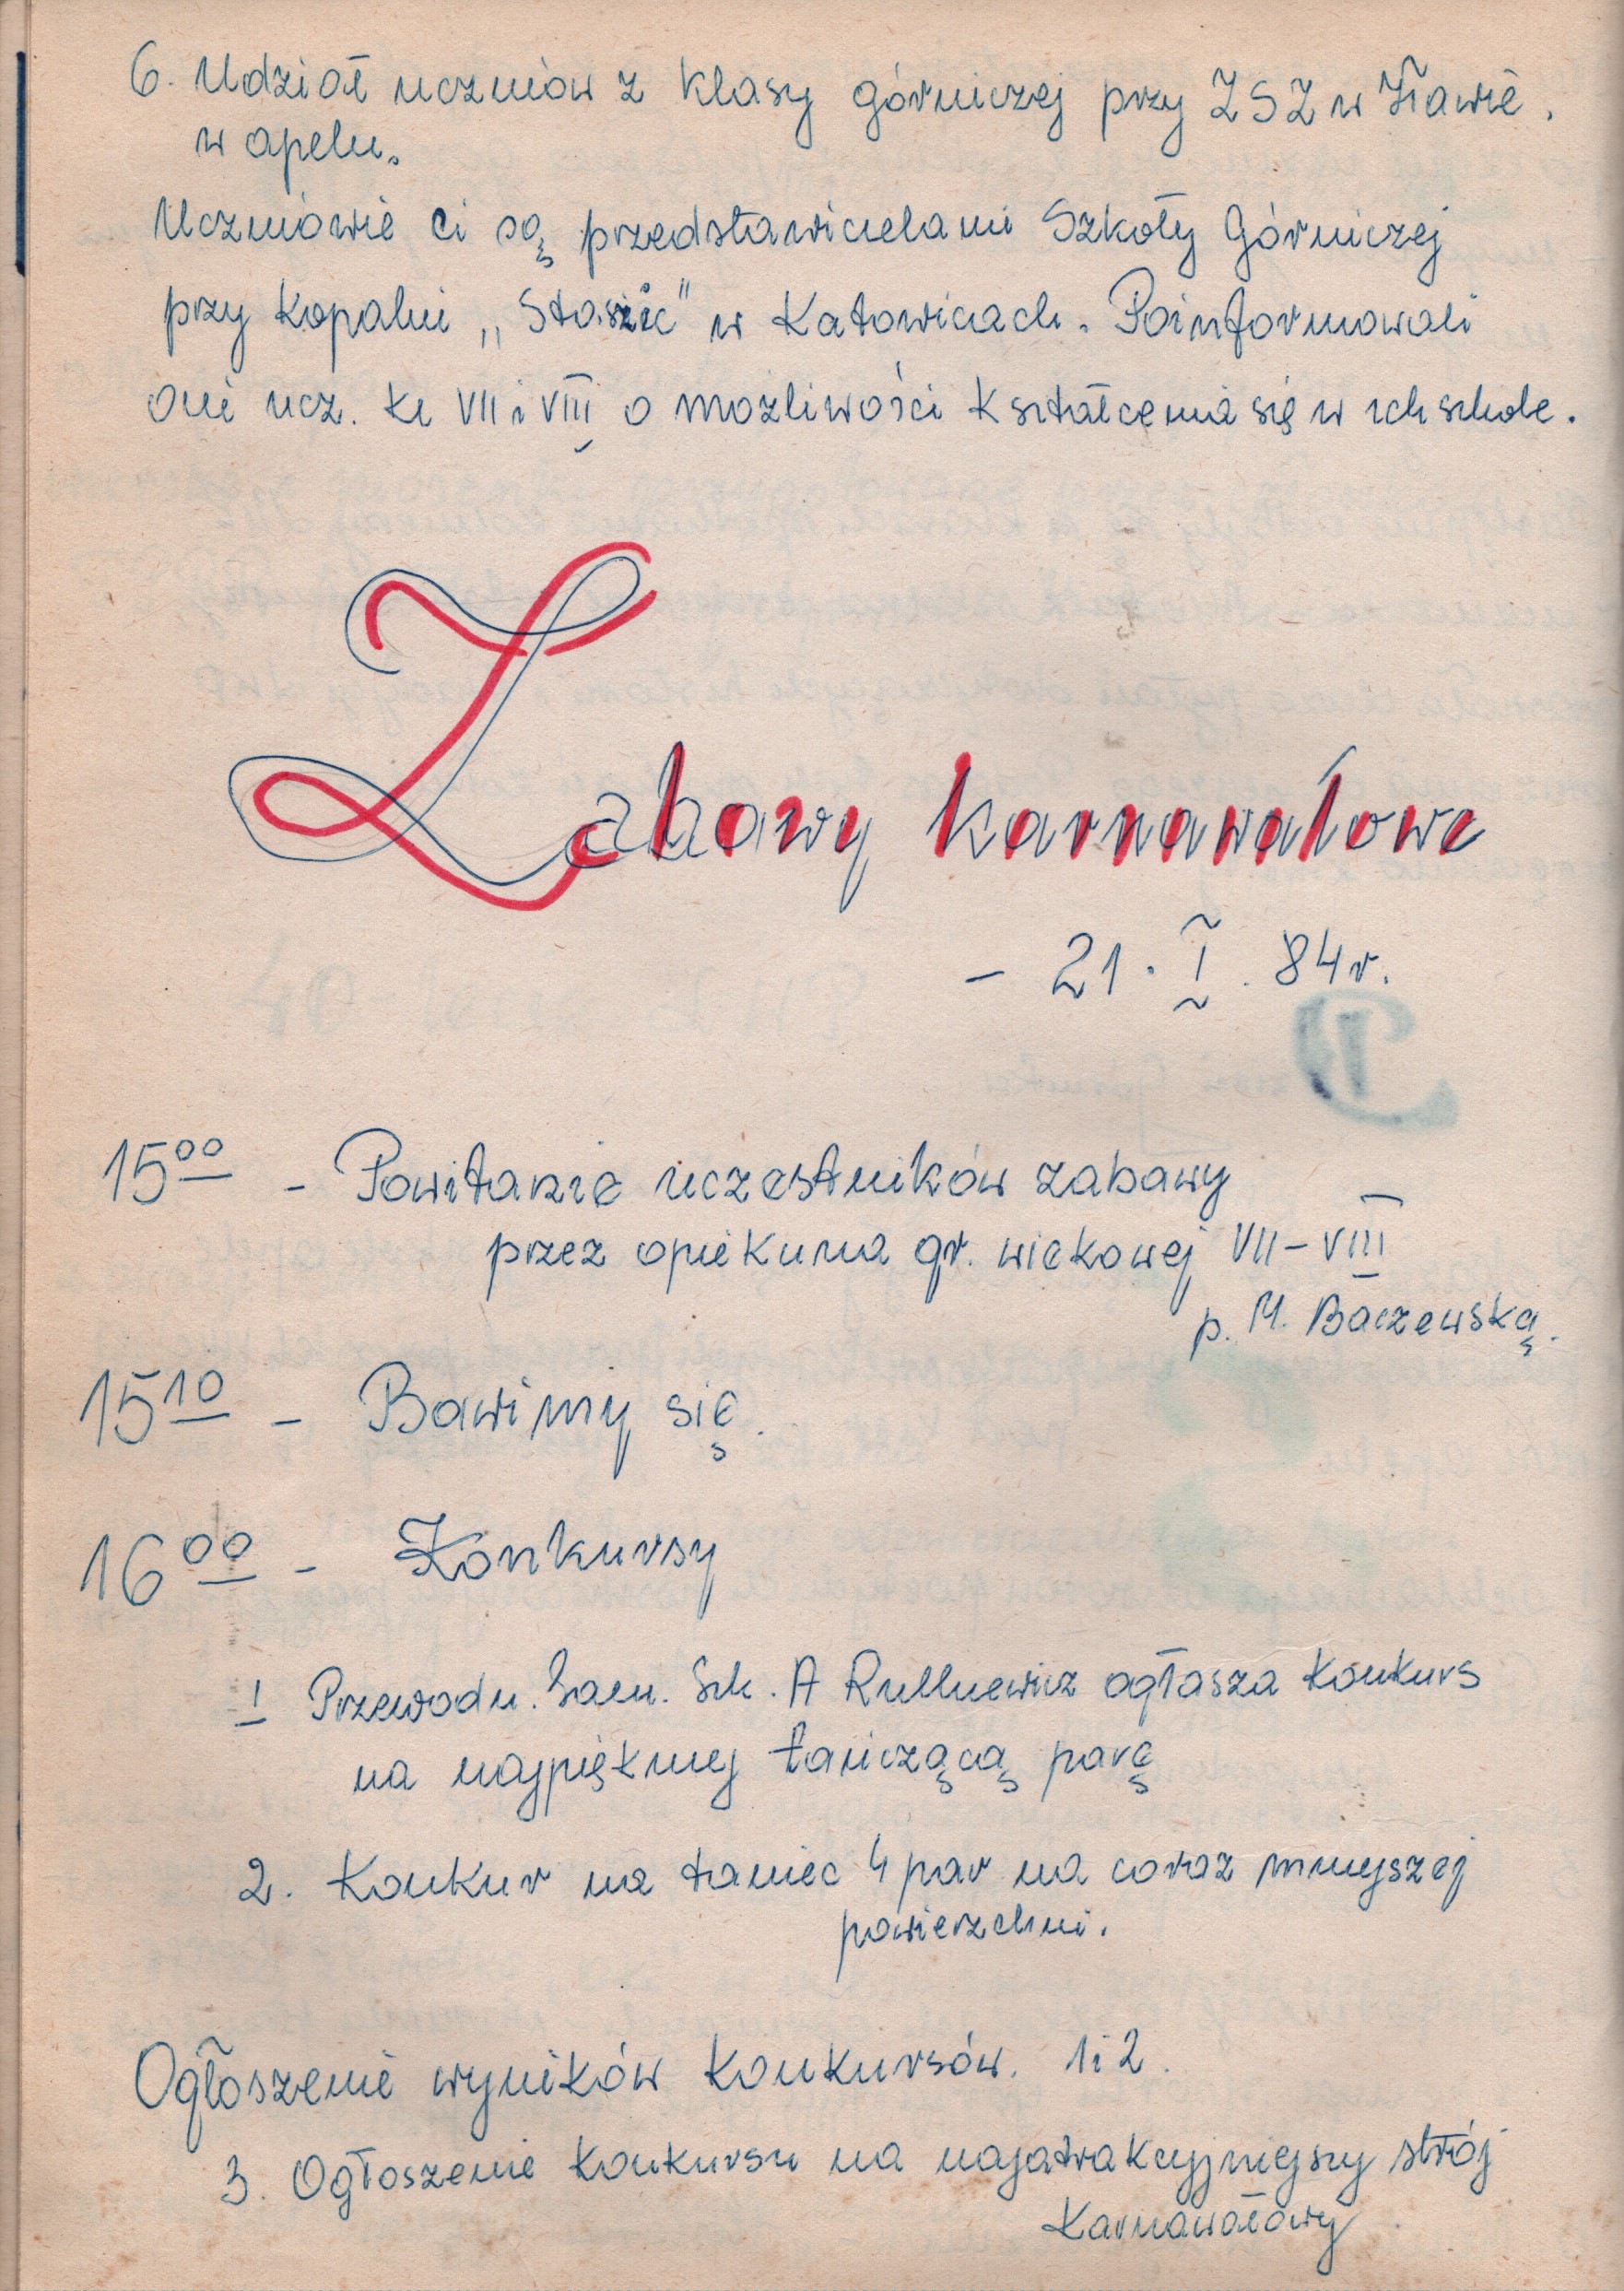 6. Udział uczniów z klasy górniczej przy ZSZ w Iławie.
w apelu.
Uczniowie ci są przedstawicielami Szkoły Górniczej
przy kopalni „Staszic" w Katowicach. Poinformowali
oni ucz. kl VII i VIII o możliwości kształcenia się w ich szkole.
Zabawy karnawałowe
- 21. I. 84r.
15⁰⁰ - Powitanie uczestników zabawy
przez opiekuna gr. wiekowej VII-VIII
p. M. Baczewską.
15¹⁰ - Bawimy się.
16⁰⁰ - Konkursy
1 Przewodn. Sam. Szk. A ogłasza konkurs
na najpiękniej tańczącą parę
2. Konkur na taniec 4 par na coraz mniejszej
powierzchni.
Ogłoszenie wyników konkursów. 1i2.
3. Ogłoszenie konkursu na najatrakcyjniejszy strój
karnawałowy